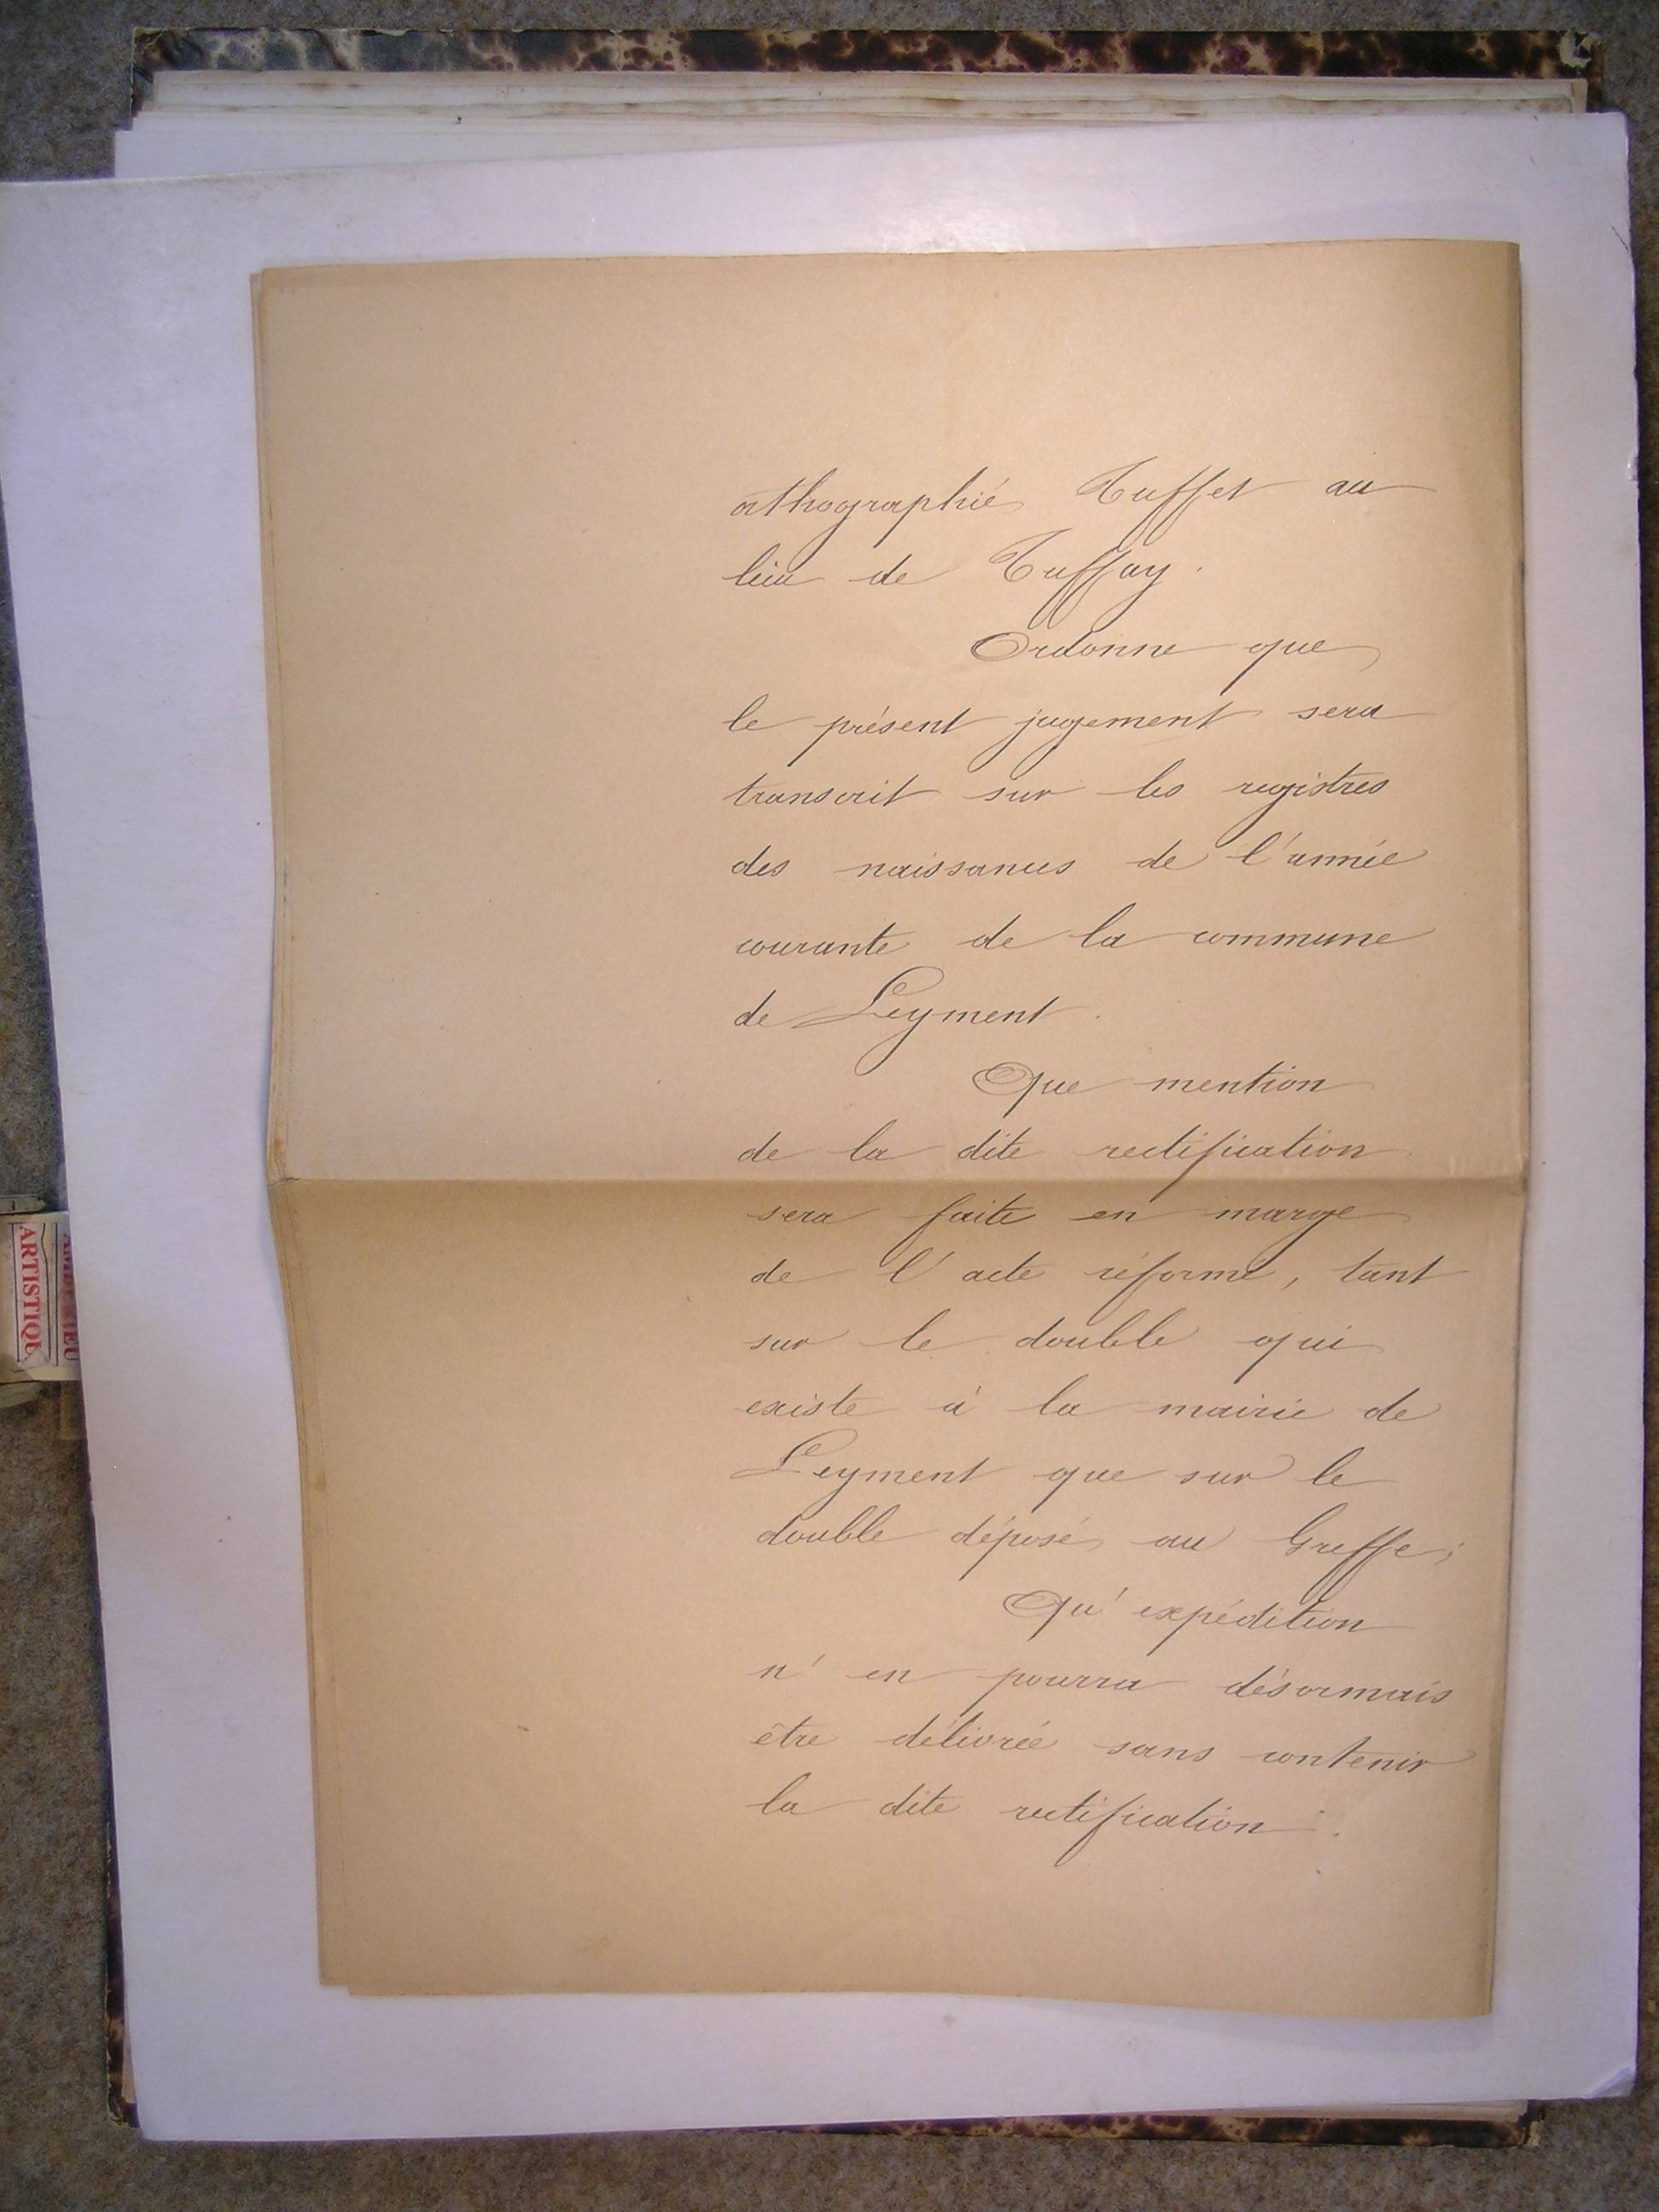 orthographié Tuffet au
lieu de Tuffay.
Ordonne que
le présent jugement sera
transcrit sur les registres
des naissances de l'année
courante de la commune
de Leyment.
Que mention
de la dite rectification
sera faite en marge
de l'acte réformé, tant
sur le double qui
existe à la mairie de
Leyment que sur le
double déposé au Greffe;
Qu'expédition
n'en pourra désormais
être délivrée sans contenir
la dite rectification.
ARTISTIQUE